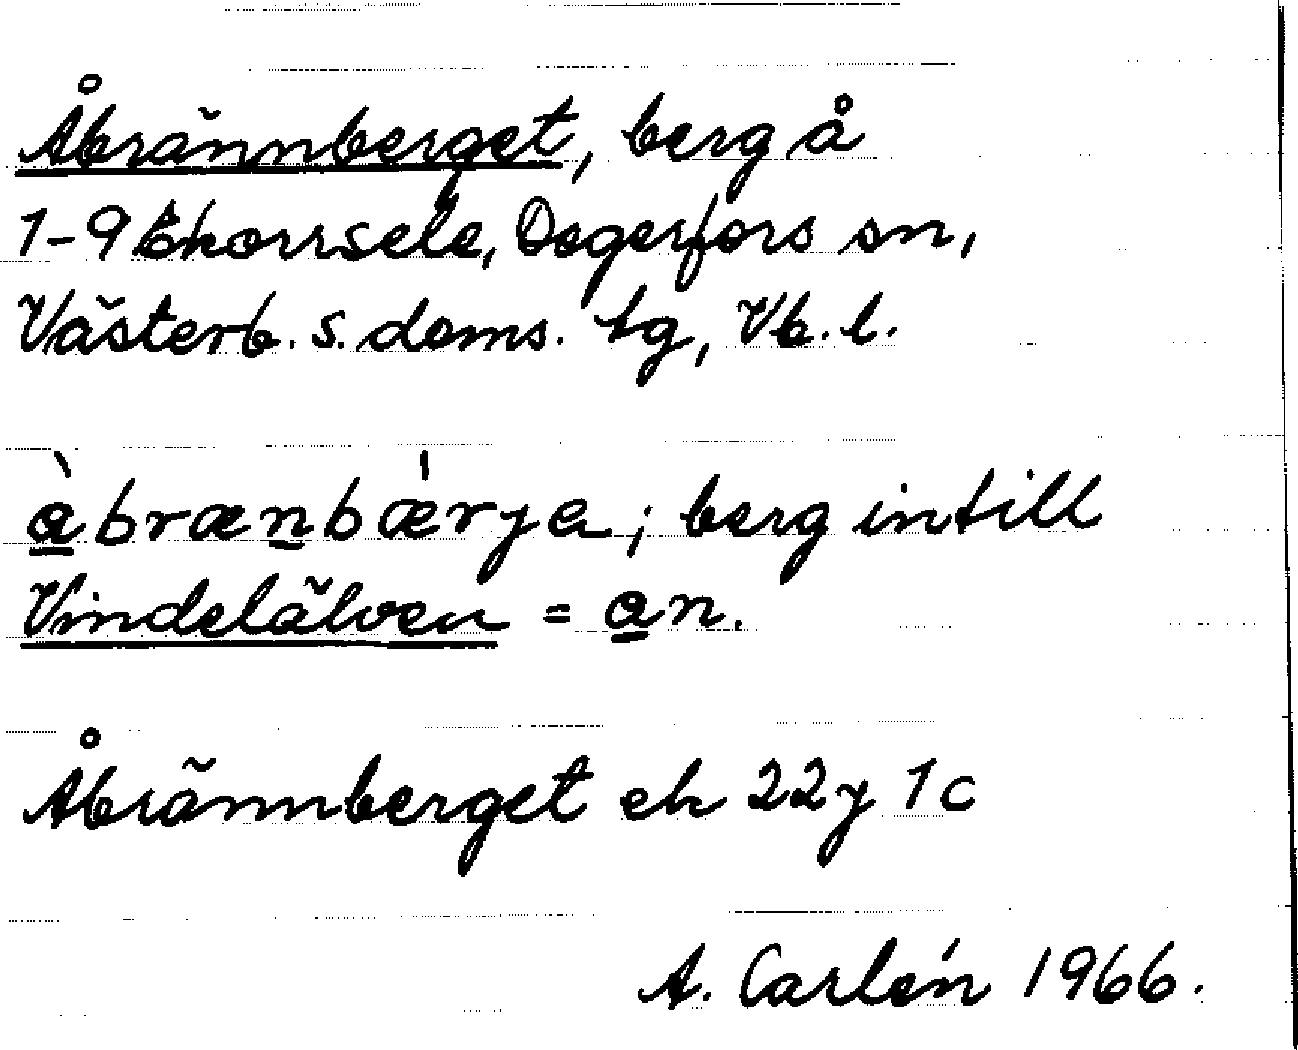 Åbrännberget, berg å
1-9 Ekorrsele, Degerfors sn,
Västerb. s. doms. tg, Vb. l.
à̱brænḇǽrye; berg intill
Vindelälven = a̱n.
Åbrännberget ek 22y 1c
A. Carlén 1966.